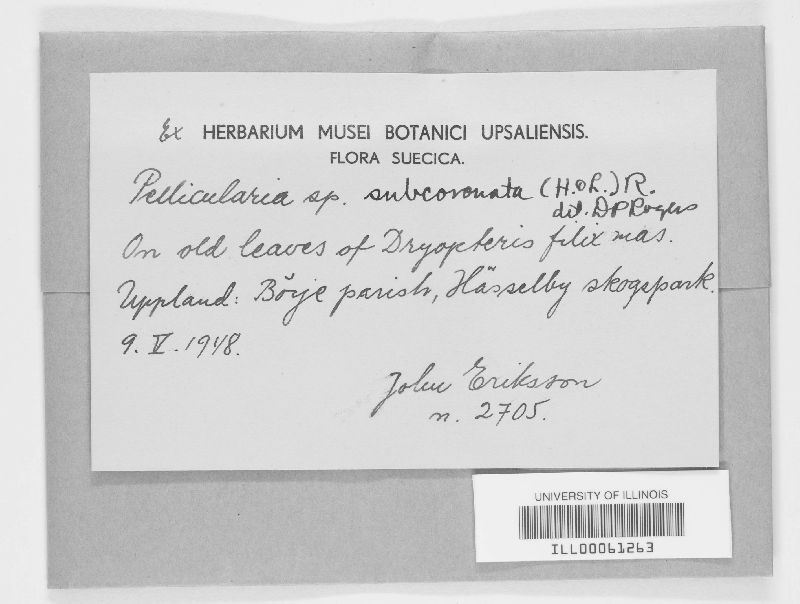 Ex HERBARIUM MUSEI BOTANICI UPSALIENSIS.
FLORA SUECICA.
Pellicularia sp. subcoronata (H.&L.) R.
det. D P Rogers
On old leaves of Dryopteris filix mas.
Uppland: Börje parish, Hässelby skogspark.
9. V. 1948.
John Eriksson
n. 2705.
UNIVERSITY OF ILLINOIS
ILL00061263